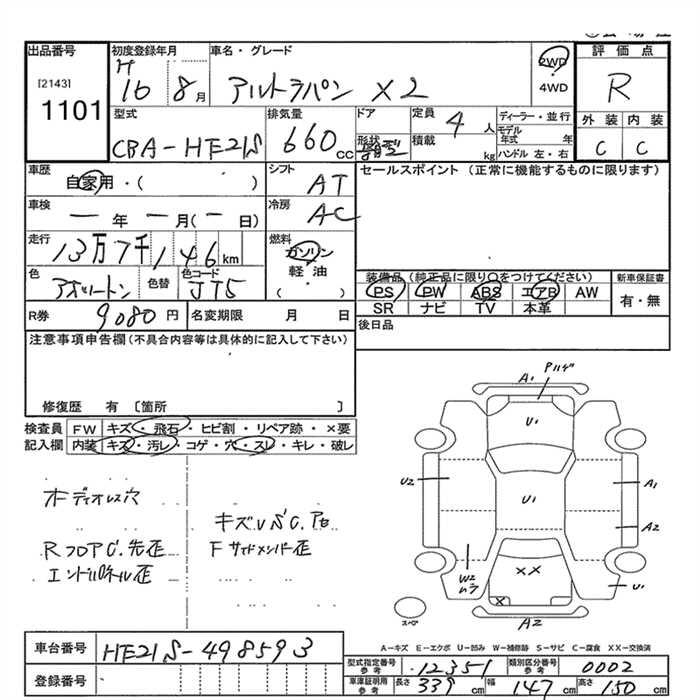 出品番号
[2143]
1101
初度登録年月
H 16 8月
車名・グレード
アルトラパン X2
2WD
・
4WD
評価点
R
外装 内装
C C
型式
CBA-HE21S
排気量
660cc
ドア
形状
定員 4人
積載 kg
ディーラー・並行
モデル年式 年
ハンドル 左・右
車歴
自家用・( )
シフト
AT
セールスポイント (正常に機能するものに限ります)
車検
― 年 ― 月(― 日)
冷房
AC
走行
13万7千146km
燃料
ガソリン
軽・油
( )
色
色替
色コード
JT5
装備品 (純正品に限り○をつけてください)
PS PW ABS エアB AW
SR ナビ TV 本革
新車保証書
有・無
R券 9080円
名変期限 月 日
後日品
注意事項申告欄(不具合内容等は具体的に記入して下さい)
修復歴 有 〔箇所 〕
検査員 FW キズ・飛石・ヒビ割・リペア跡・×要
記入欄 内装 キズ・汚レ・コゲ・穴・スレ・キレ・破レ
キズUSC.
A1
U1
U2
U1
A1
A2
W2
ムラ
XX
X
U1
A2
スペア
A-キズ E-エクボ U-凹み W-補修跡 S-サビ C-腐食 XX-交換済
車台番号 HE21S-498593
登録番号
型式指定番号参考 12351
類別区分番号参考 0002
車庫証明用参考 長さ 339cm 幅 147cm 高さ 150cm